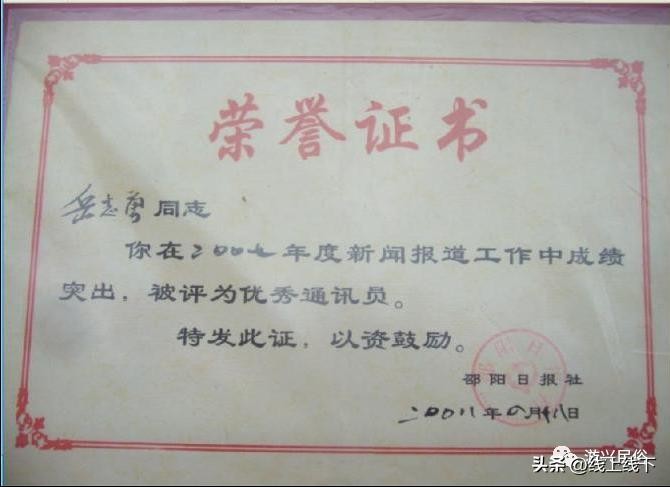 荣誉证书
岳志 同志
你在二00七年度新闻报道工作中成绩
突出，被评为优秀通讯员。
特发此证，以资鼓励。
邵阳日报社
二00八年四月 八日
游兴民俗
头条@线上线下